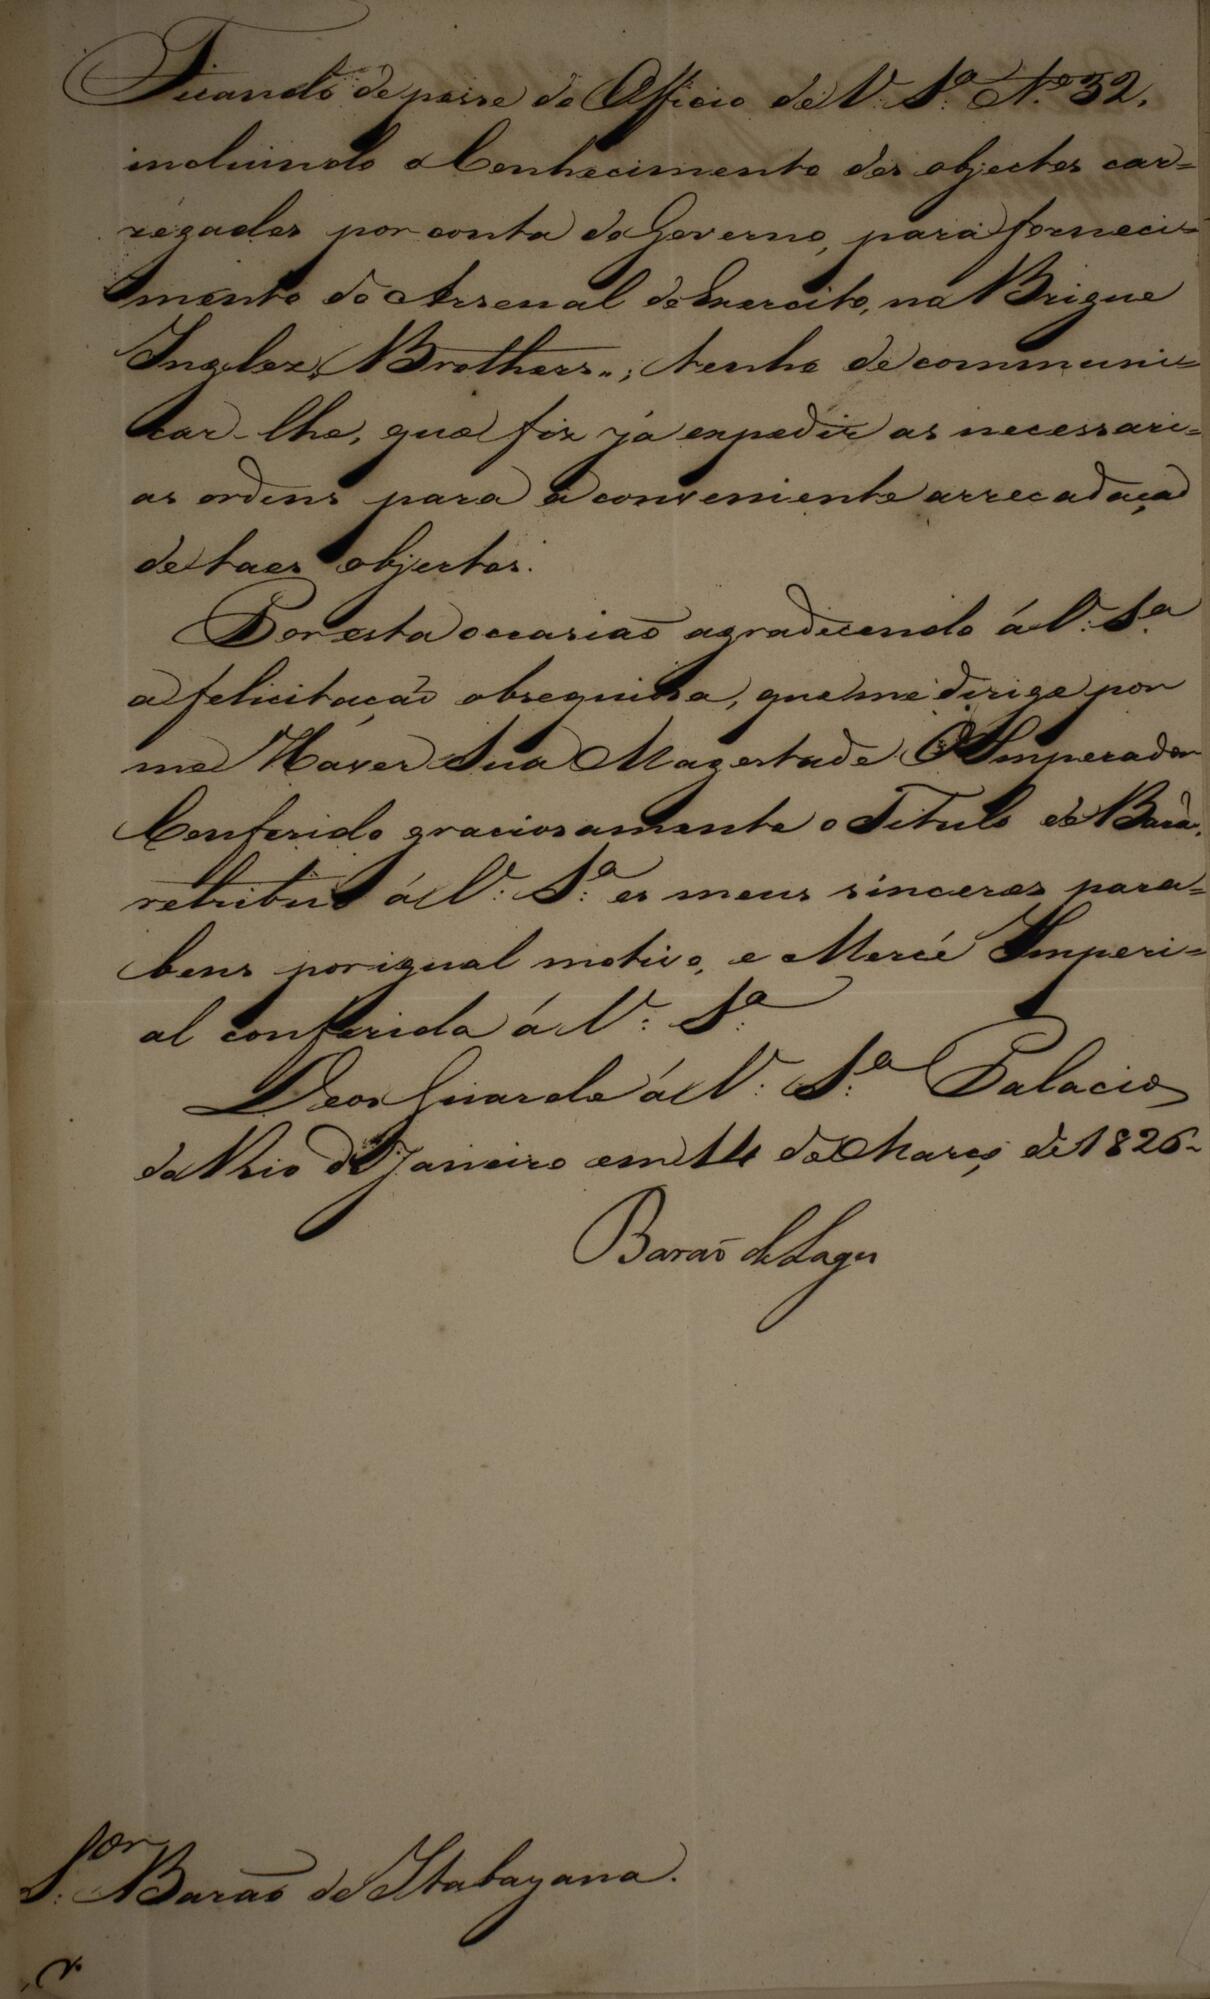 Ficando de posse do Officio de V. S.ª N.º 32,
incluindo o Conhecimento dos objectos car=
regados por conta do Governo, para forneci=
mento do Arsenal do Exercito, na Brigue
Inglez "Brothers"; tenho de communi=
car-lhe, que fiz já expedir as necessari=
as ordens para a conveniente arrecadação
de taes objectos.
Por esta occasião agradecendo á V. S.ª
a felicitação obsequiosa, que me dirige por
me Haver Sua Magestade O Imperador
Conferido graciosamente o Titulo de Barão,
retribuo á V. S.ª os meus sinceros para=
bens por igual motivo, e Mercê Imperi=
al conferida á V. S.ª
Deos Guarde á V. S.ª Palacio
do Rio de Janeiro em 14 de Março de 1826.
Barão de Lages
S.or Barão de Itabayana.